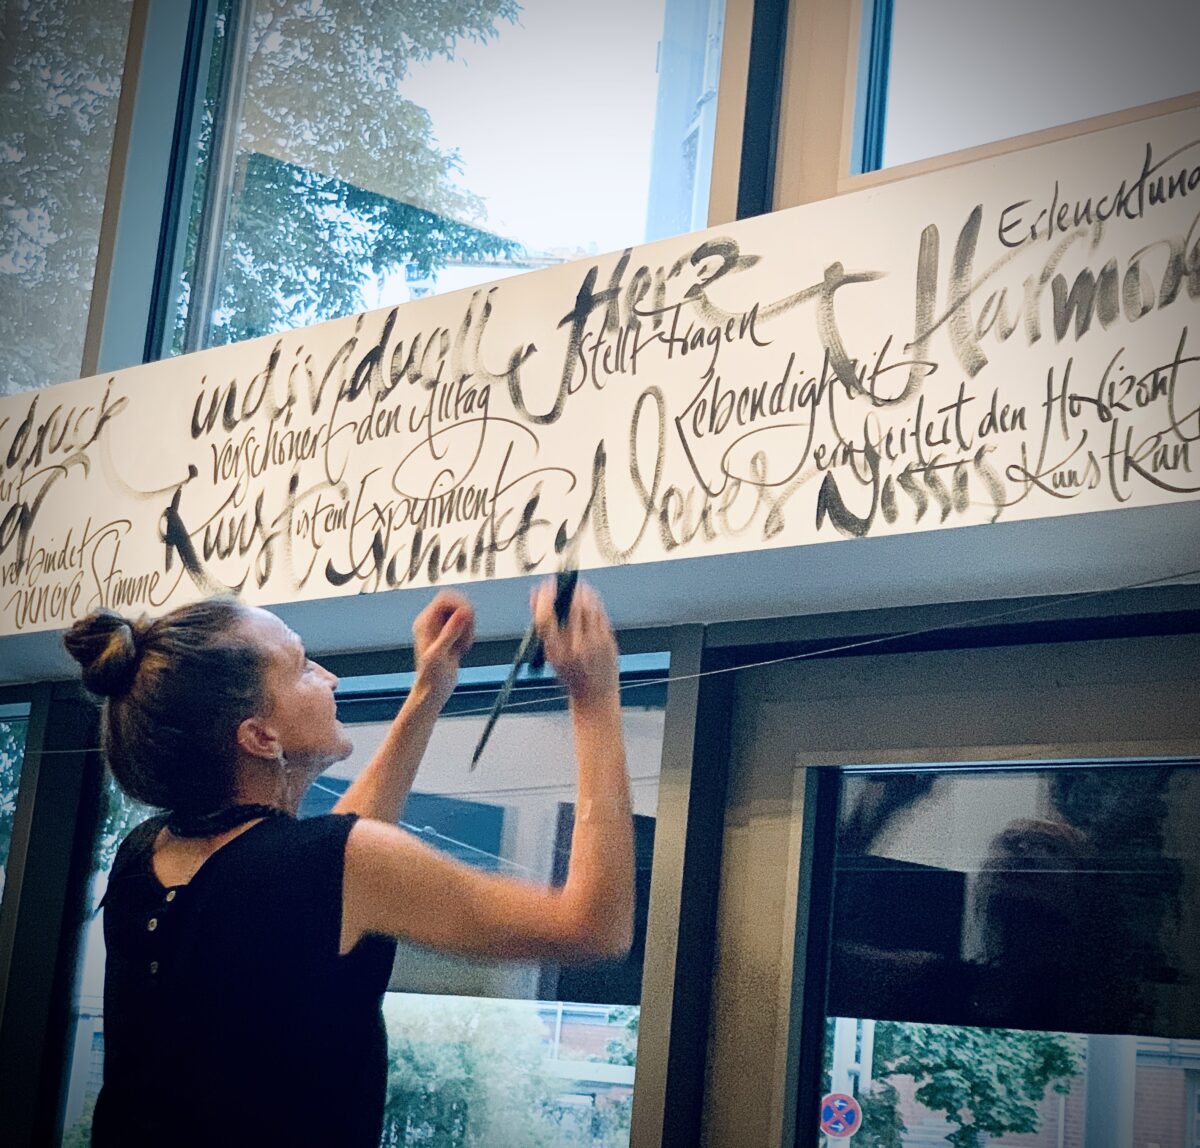 druck
individuell
Herz
Erleuchtung
verschönert den Alltag
stellt Fragen
Harmon
Lebendigkeit
erweitert den Horizont
Kunst ist ein Experiment
schafft Neues
Nissis Kunstkan
verbindet
innere Stimme